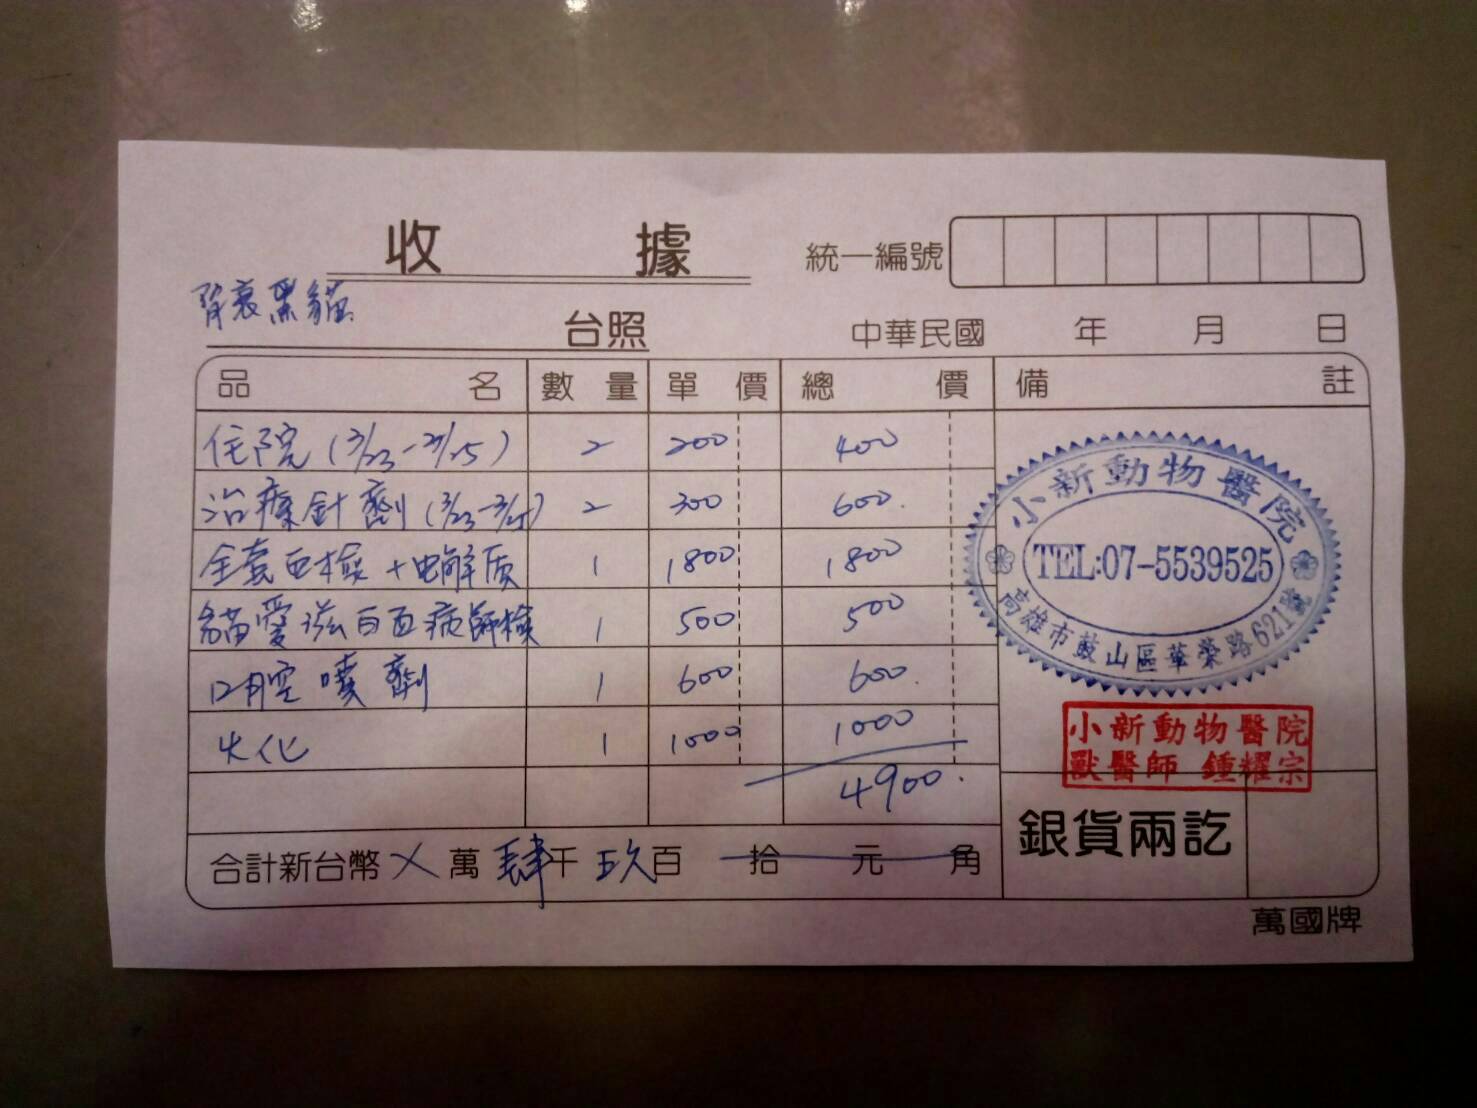 收 據
統一編號
黑貓
台照
中華民國 年 月 日
品 名 數 量 單 價 總 價 備 註
住院 (3/23-3/25) 2 200 400
治療針劑 (3/23-3/25) 2 300 600.
全套血檢+电解质 1 1800 1800
貓愛滋白血病篩檢 1 500 500
口腔噴劑 1 600 600.
火化 1 1000 1000
4900.
合計新台幣 ㄨ 萬 肆 千 玖 百 拾 元 角
小新動物醫院
TEL:07-5539525
高雄市鼓山區華榮路621號
小新動物醫院
獸醫師 鍾耀宗
銀貨兩訖
萬國牌